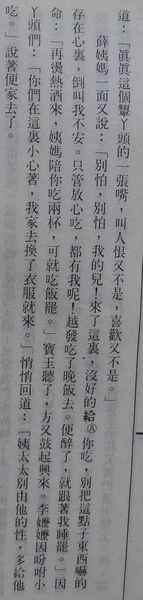 道：「真真這個顰丫頭的一張嘴，叫人恨又不是，喜歡又不是。」
薛姨媽一面又說：「別怕，別怕，我的兒！來了這裏，沒好的給Ⓐ你吃，別把這點子東西嚇的
存在心裏，倒叫我不安。只管放心吃，都有我呢！越發吃了晚飯去。便醉了，就跟著我睡罷。」因
命：「再燙熱酒來，姨媽陪你吃兩杯，可就吃飯罷。」寶玉聽了，方又鼓起興來。李嬤嬤因吩咐小
丫頭們：「你們在這裏小心著，我家去換了衣服就來。」悄悄回道：「姨太太別由他的性，多給他
吃。」說著便家去了。